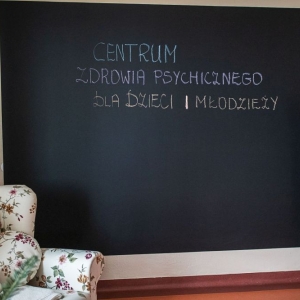 CENTRUM
ZDROWIA PSYCHICZNEGO
DLA DZIECI I MŁODZIEŻY